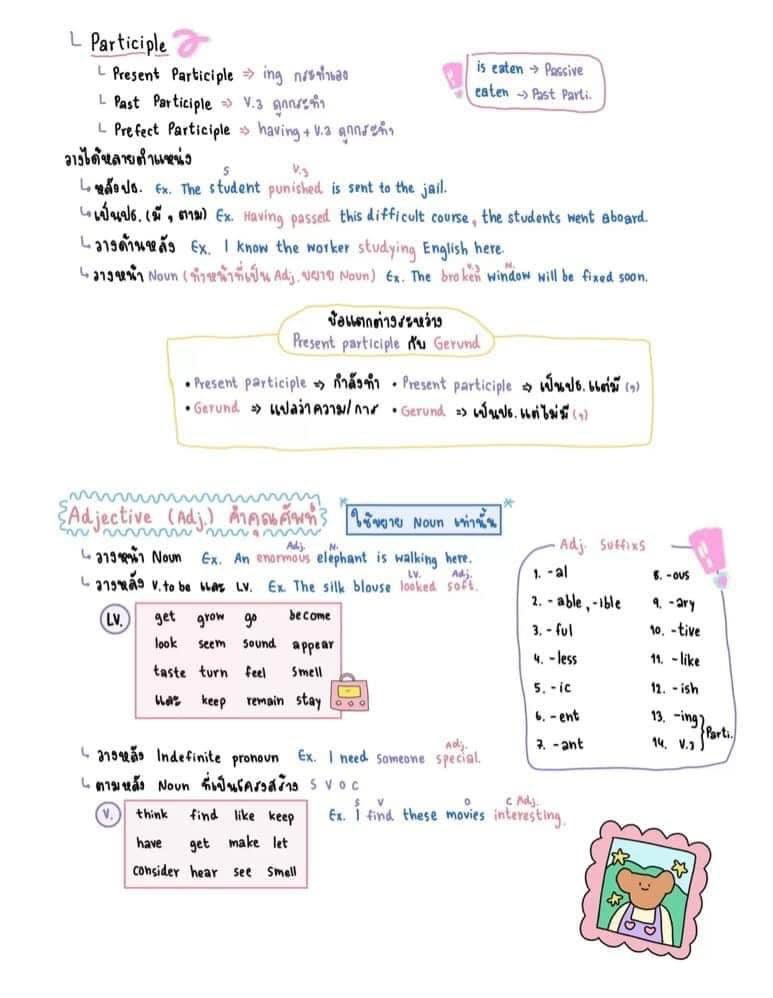 Participle
Present Participle ⇒ ing กระทำเอง
Past Participle ⇒ V.3 ถูกกระทำ
Prefect Participle ⇒ having + V.3 ถูกกระทำ
is eaten → Passive
eaten → Past Parti.
วางได้หลายตำแหน่ง
S V.3
หลังปธ. Ex. The student punished is sent to the jail.
เป็นปธ. (มี , ตาม) Ex. Having passed this difficult course, the students went aboard.
วางด้านหลัง Ex. I know the worker studying English here.
V.3 N.
วางหน้า Noun (ทำหน้าที่เป็น Adj. ขยาย Noun) Ex. The broken window will be fixed soon.
ข้อแตกต่างระหว่าง
Present participle กับ Gerund
• Present participle ⇒ กำลังทำ • Present participle ⇒ เป็นปธ. แต่มี (,)
• Gerund ⇒ แปลว่าความ/การ • Gerund ⇒ เป็นปธ. แต่ไม่มี (,)
Adjective (Adj.) คำคุณศัพท์
ใช้ขยาย Noun เท่านั้น
Adj. N.
วางหน้า Noun Ex. An enormous elephant is walking here.
LV. Adj.
วางหลัง V. to be และ LV. Ex. The silk blouse looked soft.
LV.
get grow go become
look seem sound appear
taste turn feel smell
และ keep remain stay
Adj. Suffixs
1. -al 8. -ous
2. -able, -ible 9. -ary
3. -ful 10. -tive
4. -less 11. -like
5. -ic 12. -ish
6. -ent 13. -ing
7. -ant 14. V.3
Parti.
Adj.
วางหลัง Indefinite pronoun Ex. I need someone special.
ตามหลัง Noun ที่เป็นโครงสร้าง S V O C
V.
think find like keep
have get make let
consider hear see smell
S V O C Adj.
Ex. I find these movies interesting.